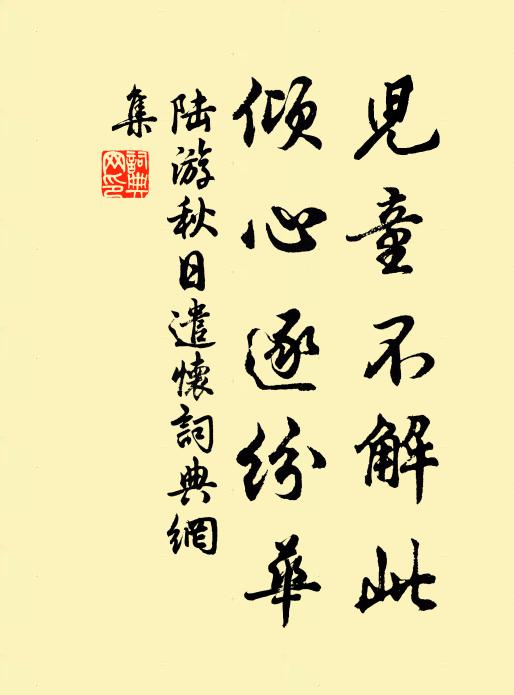 兒童不解此
傾心逐紛華
陸游秋日遣懷詞典網
集
詞典网印